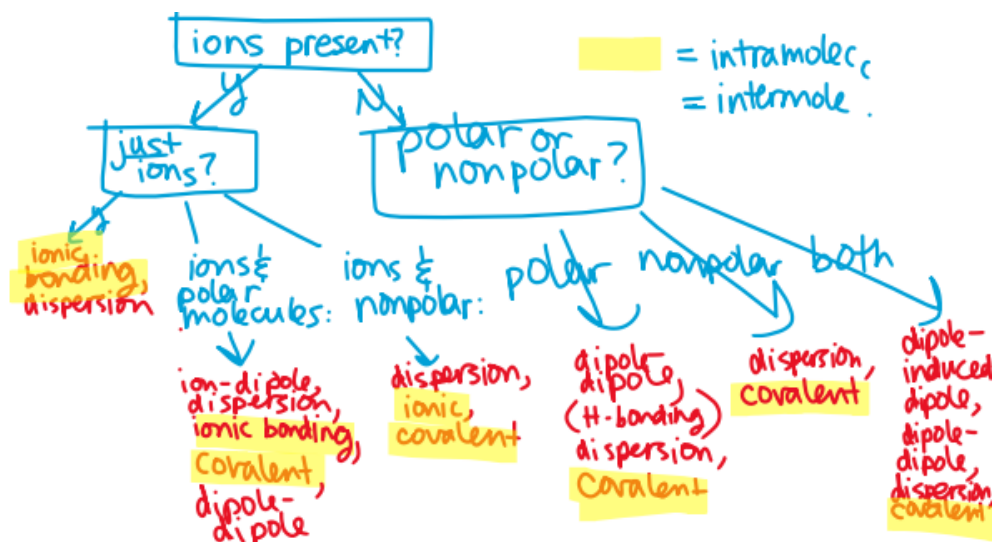 ions present?
= intramolec
= intermole.
Y
N
just
ions?
polar or
nonpolar?
y
ionic
bonding,
dispersion
ions &
polar
molecules:
ions &
nonpolar:
polar
nonpolar
both
ion-dipole,
dispersion,
ionic bonding,
covalent,
dipole-
dipole
dispersion,
ionic,
covalent
dipole-
dipole,
(H-bonding)
dispersion,
covalent
dispersion,
covalent
dipole-
induced
dipole,
dipole-
dipole,
dispersion,
covalent